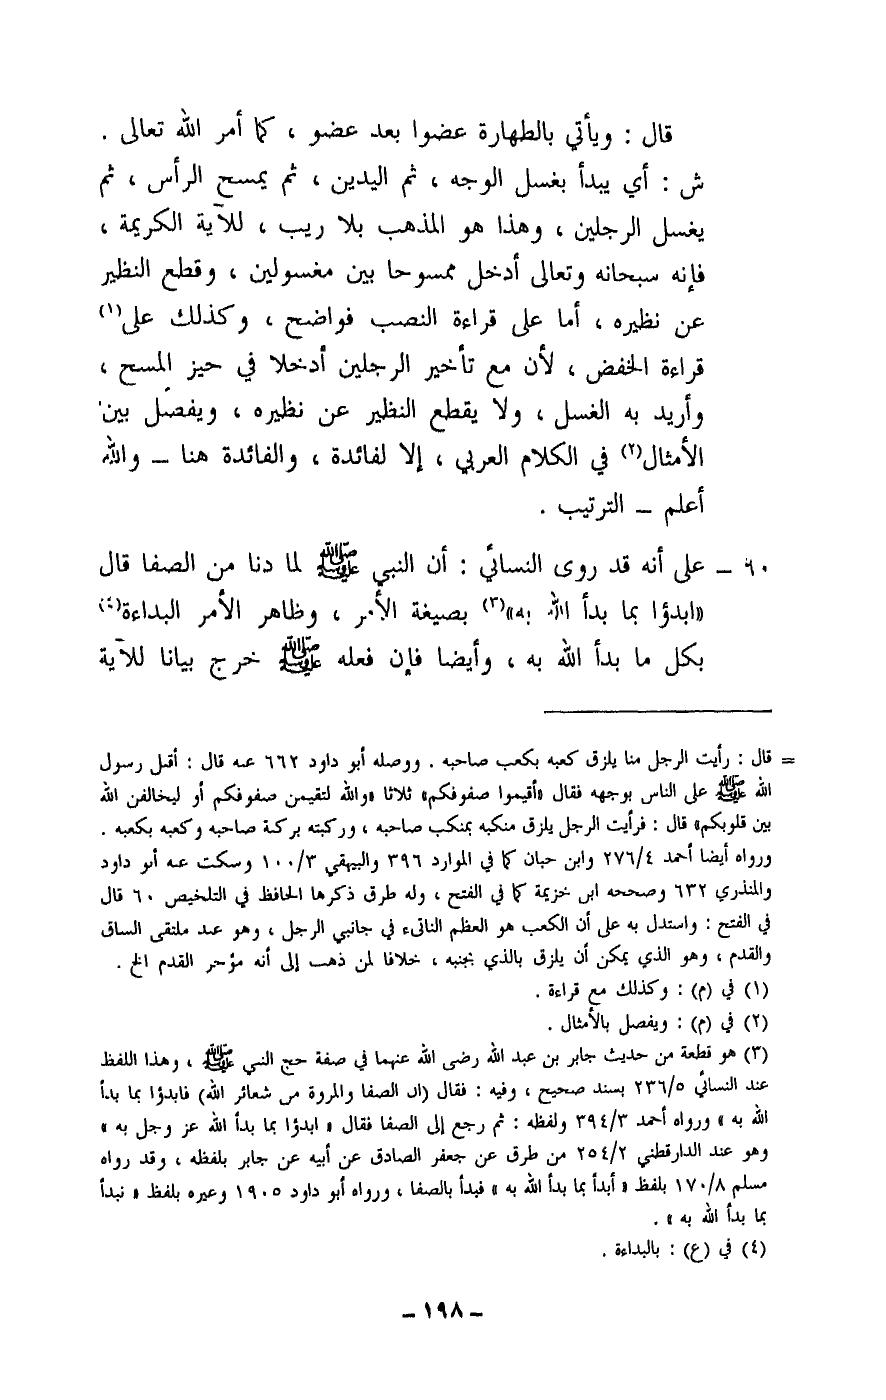 قال : ويأتي بالطهارة عضوا بعد عضو ، كما أمر الله تعالى .
ش : أي يبدأ بغسل الوجه ، ثم اليدين ، ثم يمسح الرأس ، ثم
يغسل الرجلين ، وهذا هو المذهب بلا ريب ، للآية الكريمة ،
فإنه سبحانه وتعالى أدخل ممسوحا بين مغسولين ، وقطع النظير
عن نظيره ، أما على قراءة النصب فواضح ، وكذلك على(١)
قراءة الخفض ، لأن مع تأخير الرجلين أدخلا في حيز المسح ،
وأريد به الغسل ، ولا يقطع النظير عن نظيره ، ويفصل بين
الأمثال(٢) في الكلام العربي ، إلا لفائدة ، والفائدة هنا ــ والله
أعلم ــ الترتيب .
٦٠ ــ على أنه قد روى النسائي : أن النبي ﷺ لما دنا من الصفا قال
«ابدؤا بما بدأ الله به»(٣) بصيغة الأمر ، وظاهر الأمر البداءة(٤)
بكل ما بدأ الله به ، وأيضا فإن فعله ﷺ خرج بيانا للآية
= قال : رأيت الرجل منا يلزق كعبه بكعب صاحبه . ووصله أبو داود ٦٦٢ عنه قال : أقبل رسول
الله ﷺ على الناس بوجهه فقال «أقيموا صفوفكم» ثلاثا «والله لتقيمن صفوفكم أو ليخالفن الله
بين قلوبكم» قال : فرأيت الرجل يلزق منكبه بمنكب صاحبه ، وركبته بركبة صاحبه وكعبه بكعبه .
ورواه أيضا أحمد ٢٧٦/٤ وابن حبان كما في الموارد ٣٩٦ والبيهقي ١٠٠/٣ وسكت عنه أبو داود
والمنذري ٦٣٢ وصححه ابن خزيمة كما في الفتح ، وله طرق ذكرها الحافظ في التلخيص ٦٠ قال
في الفتح : واستدل به على أن الكعب هو العظم الناتىء في جانبي الرجل ، وهو عند ملتقى الساق
والقدم ، وهو الذي يمكن أن يلزق بالذي بجنبه ، خلافا لمن ذهب إلى أنه مؤخر القدم الخ .
(١) في (م) : وكذلك مع قراءة .
(٢) في (م) : ويفصل بالأمثال .
(٣) هو قطعة من حديث جابر بن عبد الله رضى الله عنهما في صفة حج النبي ﷺ ، وهذا اللفظ
عند النسائي ٢٣٦/٥ بسند صحيح ، وفيه : فقال (ان الصفا والمروة من شعائر الله) فابدؤا بما بدأ
الله به » ورواه أحمد ٣٩٤/٣ ولفظه : ثم رجع إلى الصفا فقال « ابدؤا بما بدأ الله عز وجل به »
وهو عند الدارقطني ٢٥٤/٢ من طرق عن جعفر الصادق عن أبيه عن جابر بلفظه ، وقد رواه
مسلم ١٧٠/٨ بلفظ « أبدأ بما بدأ الله به » فبدأ بالصفا ، ورواه أبو داود ١٩٠٥ وغيره بلفظ « نبدأ
بما بدأ الله به » .
(٤) في (ع) : بالبداءة .
ــ ١٩٨ ــ